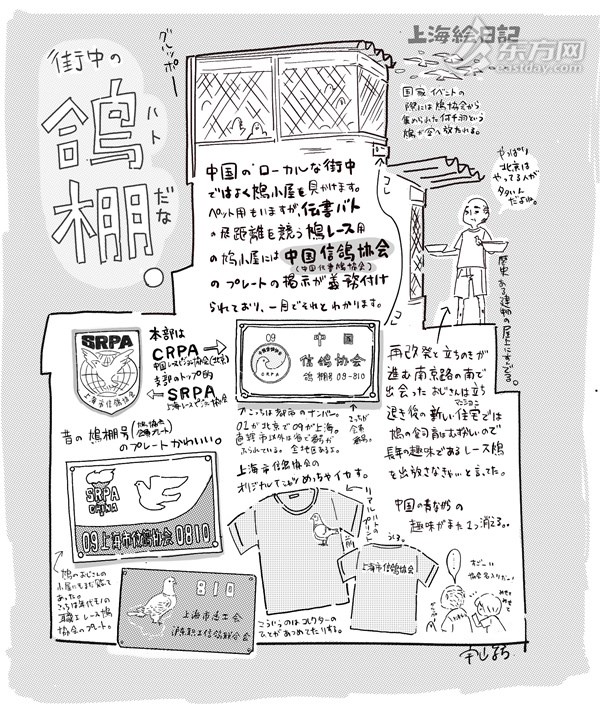 上海絵日記
东方网
eastday.com
街中の
鴿棚。
ハト
だな
グルッポー
国家イベントの
際には鳩協会から
集められた何千羽という
鳩が空へ放たれる。
やっぱり
北京は
やってる人が
多いん
だよね。
中国のローカルな街中
ではよく鳩小屋を見かけます。
ペット用もいますが、伝書バト
の飛距離を競う鳩レース用
の鳩小屋には中国信鴿協会
(中国伝書鳩協会)
のプレートの掲示が義務付け
られており、一目でそれとわかります。
歴史ある建物の屋上にすんでる。
SRPA
上海市信鸽協会
本部は
CRPA
支部のトップ的
SRPA
09 中国
信鸽協会
鴿棚号 09-810
昔の鳩棚号
のプレートかわいい。
SRPA
CHINA
09上海市信鸽協会 0810
こっちは都市のナンバー。
01が北京で09が上海。
直轄市以外は省で番号が
ふられている。全地区あるよ。
こっちが
会員
番号。
上海市信鸽協会の
オリジナルTシャツめっちゃイカす。
リアルハトの
プリント
前
うしろ
上海市信鸽協会
再改発で立ちのきが
進む南京路の南で
出会ったおじさんは立ち
退き後の新しい住宅では
マンション
鳩の飼育はむずかしいので
長年の趣味であるレース鳩
を手放さなきゃいと言ってた。
中国の昔ながらの
趣味がまた1つ消える。
鳩のおじさんの
小屋にもまだ飾って
あった。
810
上海市总工会
沪东职工信鸽联合会
こういうのはコレクターの
ひとがあつめてたりする。
すごーい